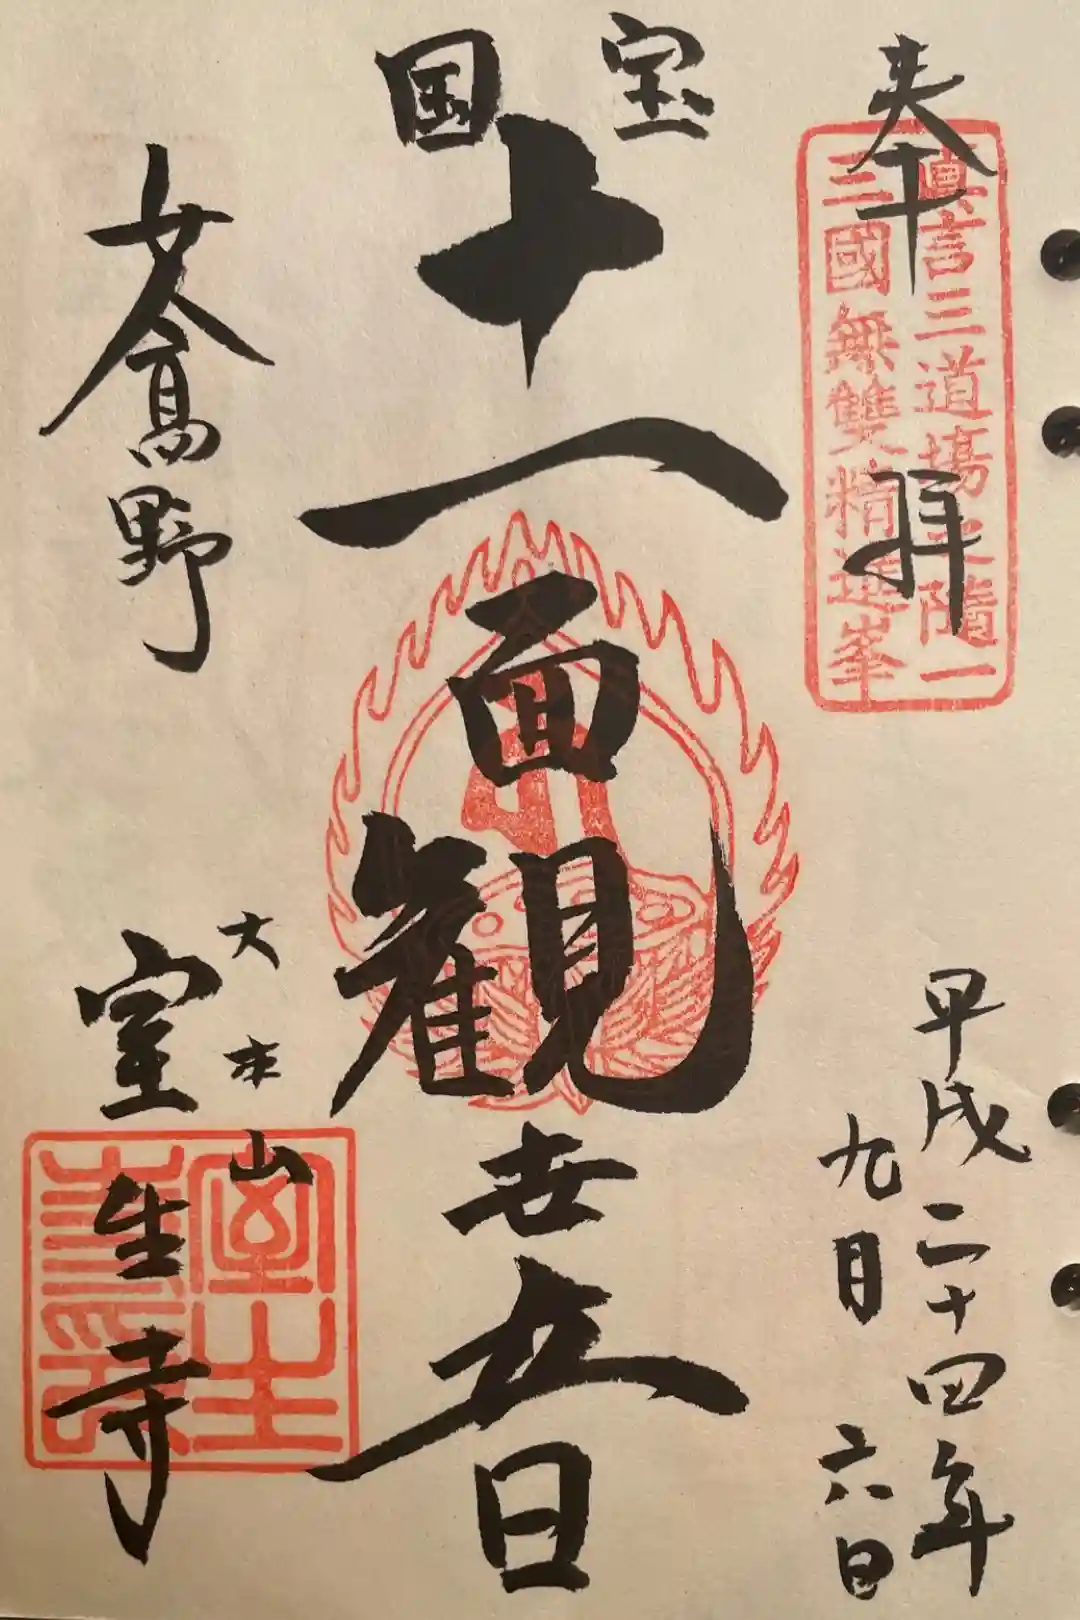 奉拝
眞言三道場之隨一
三國無雙精進峯
平成二十四年
九月六日
国宝
十一面観世音
女人高野
大本山
室生寺
室生